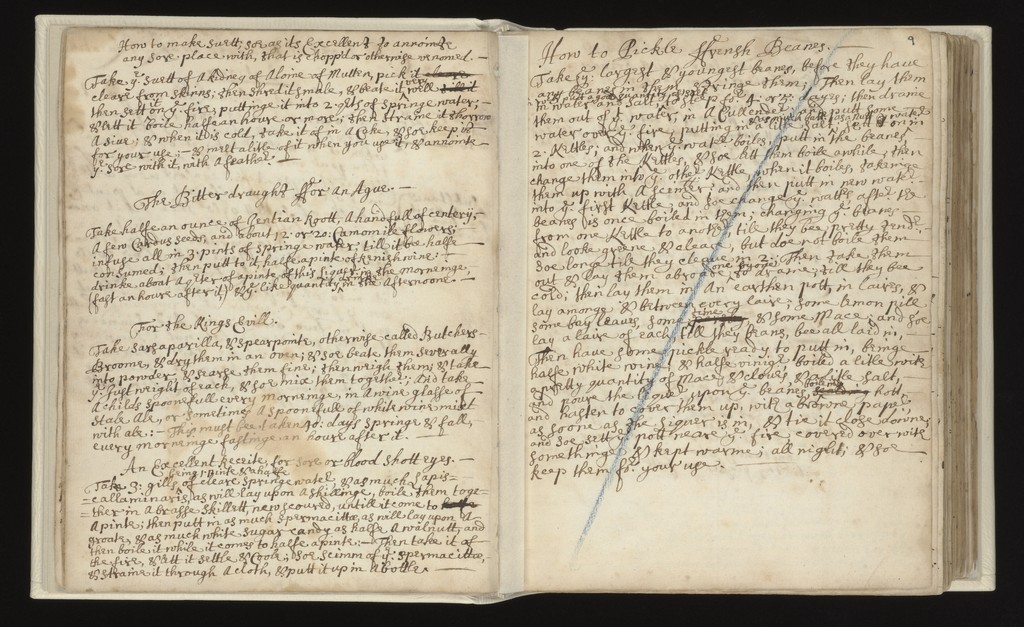 How to make suett; soe as its Excellent to annointe
any sore place with, that is chopp'd or otherwise venomed. —
Take ye suett of A Kidney of A loine of Mutten, pick it
cleare from skinns; then shred it smale, & beate it very well
then sett on ye fire, puttinge it into 2 qrts of springe water;
& lett it boile halfe an houre or more; then straine it thorrow
A sive; & when it is cold, take it of in A Cake, & soe keep itt
for your use; — & melt a litle of it when you use it, & annointe
ye sore with it, with A feather. —
The Bitter draught ffor an Ague. —
Take halfe an ounce of Gentian Roott, A handfull of centery;
A few Carduus seeds, and about 12: or 20: Camomile flowers;
infuse all in 3: pints of springe water; till it be halfe
consumed; then putt to it, halfe a pinte of Renish wine: —
drinke about A qter of a pinte of this liquor in the mornemge,
(fast an houre after it) & ye like quantity in the Afternoone. —
For the Kings Evill.
Take Sarsaparilla, & spearpointe, otherwise called Butchers-
Broome, & dry them in an oven; & soe beate them severally
into powder; & searse them fine; then weigh them; & take
ye just weight of each, & soe mix them together; And take
A childs spoonefull every mornemge, in A wine glasse of
Stale Ale, or sometimes A spoonfull of white wine mixt
with ale: — This must bee taken 40: days springe & fall,
every mornemge fastinge an houre after it. —
An Excellent Receite, for sore or blood shott eyes. —
being 1 pinte & a halfe
Take 3: gills of cleare springe water, & as much Lapis=
=callaminaris, as will lay upon A shillinge, boile them toge=
=ther in A brasse skillett, new scoured, untill it come to
A pinte; then putt in as much spermacittæ, as will lay upon A
groate, & as much white sugar candy as halfe A walnutt, and
then boile it while it comes to halfe a pinte: — Then take it of
the fire, & lett it settle & Coole; soe scimm of ye spermacittæ,
& straine it through A cloth, & putt it up in A bottle. —
9
How to Pickle ffrensh Beanes. —
Take ye largest & youngest beanes, before they have
any beanes in them
in water and salt, to steep for 4: or 5: dayes; then draine
them out of ye water, in A Cullender; then putt some
water over ye fire, putting in a litle salt
2: Kettles; and when ye water boiles, putt in the beanes
into one of the Kettles, & soe lett them boile a while; then
change them into ye other Kettle, when it boiles, takeinge
them up with A scimer; and then putt in new water
into ye first Kettle; and soe change ye water after the
beanes is once boiled in them; changing ye beanes
from one Kettle to another till they bee pretty tender,
and looke greene & cleare, but doe not boile them
soe longe till they cleave in 2: Then take them
out & lay them abroade to draine; till they bee
cold; then lay them in An earthen pott, in laires, &
lay amongs & between every laire; some Lemon pill
some bay leaves, some & some Mace; and soe
lay a laire of each till they beans, bee all laid in,
Then have some pickle ready to putt in, beinge
halfe white wine, & halfe viniger boiled a litle with
a pretty quantity of Mace & cloves, & a litle salt,
and poure the liquor upon ye beanes boileing hott,
and hasten to cover them up, with a browne paper
as soone as the liquor is in, & tie it close downe;
and soe sett ye pott neare ye fire covered over with
somethinge, & kept warme; all night; & soe
keep them for your use. —